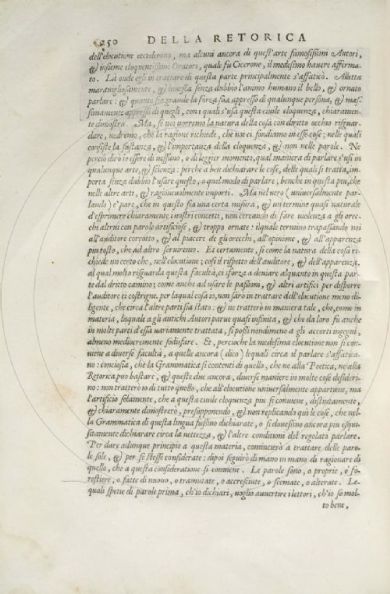 250 DELLA RETORICA
dell'elocutione eccederono, ma alcuni ancora di quest'arte famosissimi Autori,
& insieme eloquentissimi Oratori, quale fu Cicerone, il medesimo havere afferma-
to. La onde egli in trattare di questa parte principalmente s'affaticò. Alletta
maravigliosamente, & invesca senza dubbio l'animo humano il bello, & ornato
parlare: & quanto sia grande la forza sua appresso di qualunque persona, & mas-
simamente appresso di quelli, con i quali s'usa questa civile eloquenza, chiara-
mente dimostra. Ma, se noi vorremo la natura della cosa con diritto occhio riguar-
dare, vedremo, che la ragione richiede, che noi ci fondiamo in esse cose; nelle quali
consiste la sustanza, & l'importanza della eloquenza, & non nelle parole. Ne
perciò dirò io essere di nessuno, o di leggier momento, qual maniera di parlare s'usi in
qualunque arte, & scienza: perche a ben dichiarare le cose, delle quali si tratta, im-
porta senza dubbio l'usare questo, o quel modo di parlare, benche in questa piu, che
nelle altre arti, & ragionevolmente importi. Assai nel vero (universalmente par-
lando) è pare, che in questo sia una certa misura, & un termine quasi naturale
d'esprimere chiaramente i nostri concetti, non cercando di fare violenza a gli orec-
chi altrui con parole artificiose, & troppo ornate: i quali termini trapassando noi
all'auditore corrotto, & al piacere de gli orecchi, all'opinione, & all'apparenza
piu tosto, che ad altro serviremo. Et certamente, sì come la natura della cosa ri-
chiede un certo che, nell'elocutione; così il rispetto dell'auditore, & dell'apparenza,
al qual molto riguarda questa facultà, ci sforza a deviare alquanto in questa par-
te dal diritto camino; come anche ad usare le passioni, & altri artifici per disporre
l'auditore ci costrigne, per la qual cosa io, non sarò in trattare dell'elocutione meno di-
ligente, che circa l'altre parti sia stato, & in trattare in maniera tale, che, come in
materia, la quale a gli antichi Autori parve quasi infinita, & che da loro fu anche
in molte parti d'essa variamente trattata, si possi rendimmo a gli accorti ingegni,
almeno mediocremente sodisfare. Et, perche la medesima elocutione non si con-
viene a diverse facultà, a quelle ancora (dico) le quali circa il parlare s'affatica-
no: conciosia, che la Grammatica si contenti di quello, che ne alla Poetica, ne alla
Retorica puo bastare, & queste due ancora, diverse maniere in molte cose desideri-
no: non tratterò io di tutto quello, che all'elocutione universalmente appartiene, ma
l'artificio solamente, che a questa civile eloquenza piu si conviene, distintamente,
& chiaramente dimostrerò, presupponendo, & non replicando quì le cose, che nel-
la Grammatica di questa lingua fussino dichiarate, o si dovessino ancora piu esqui-
sitamente dichiarare circa la nettezza, & l'altre conditioni del regolato parlare.
Per dare adunque principio a questa materia, comincierò a trattare delle paro-
le sole, & per se stesse considerate: dipoi seguirò di mano in mano di ragionare di
quello, che a questa consideratione si conviene. Le parole sono, o proprie, o fo-
restiere, o fatte di nuovo, o tramutate, o accresciute, o scemate, o alterate. Le-
quali spetie di parole prima, ch'io dichiari, voglio avvertire i lettori, ch'io so mol-
to bene,